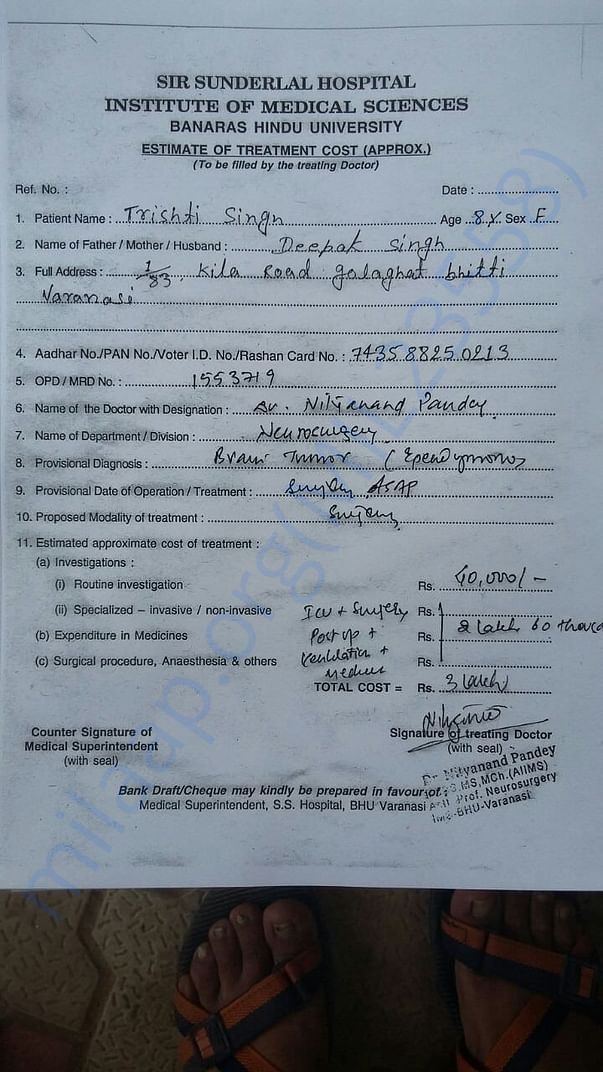 SIR SUNDERLAL HOSPITAL
INSTITUTE OF MEDICAL SCIENCES
BANARAS HINDU UNIVERSITY
ESTIMATE OF TREATMENT COST (APPROX.)
(To be filled by the treating Doctor)
Ref. No. : Date :
1. Patient Name : Trishti Singh Age 8 Y Sex F
2. Name of Father / Mother / Husband : Deepak Singh
3. Full Address : 1/83, Kila Road golaghat bhitti
Varanasi
4. Aadhar No./PAN No./Voter I.D. No./Rashan Card No. : 743588250213
5. OPD / MRD No. : 1553719
6. Name of the Doctor with Designation : Dr. Nityanand Pandey
7. Name of Department / Division : Neurosurgery
8. Provisional Diagnosis : Brain Tumor (Ependymoma)
9. Provisional Date of Operation / Treatment : Surgery ASAP
10. Proposed Modality of treatment : Surgery
11. Estimated approximate cost of treatment :
(a) Investigations :
(i) Routine investigation Rs. 40,000/-
(ii) Specialized – invasive / non-invasive ICU + Surgery Rs.
(b) Expenditure in Medicines Post op + Rs. 2 lakh 60
(c) Surgical procedure, Anaesthesia & others Ventilation + Rs.
TOTAL COST = Rs. 3 lakh
Counter Signature of
Medical Superintendent
(with seal)
Signature of treating Doctor
(with seal)
Dr. Nityanand Pandey
MS, MCh. (AIIMS)
Prof. Neurosurgery
IMS-BHU-Varanasi
Bank Draft/Cheque may kindly be prepared in favour of :
Medical Superintendent, S.S. Hospital, BHU Varanasi